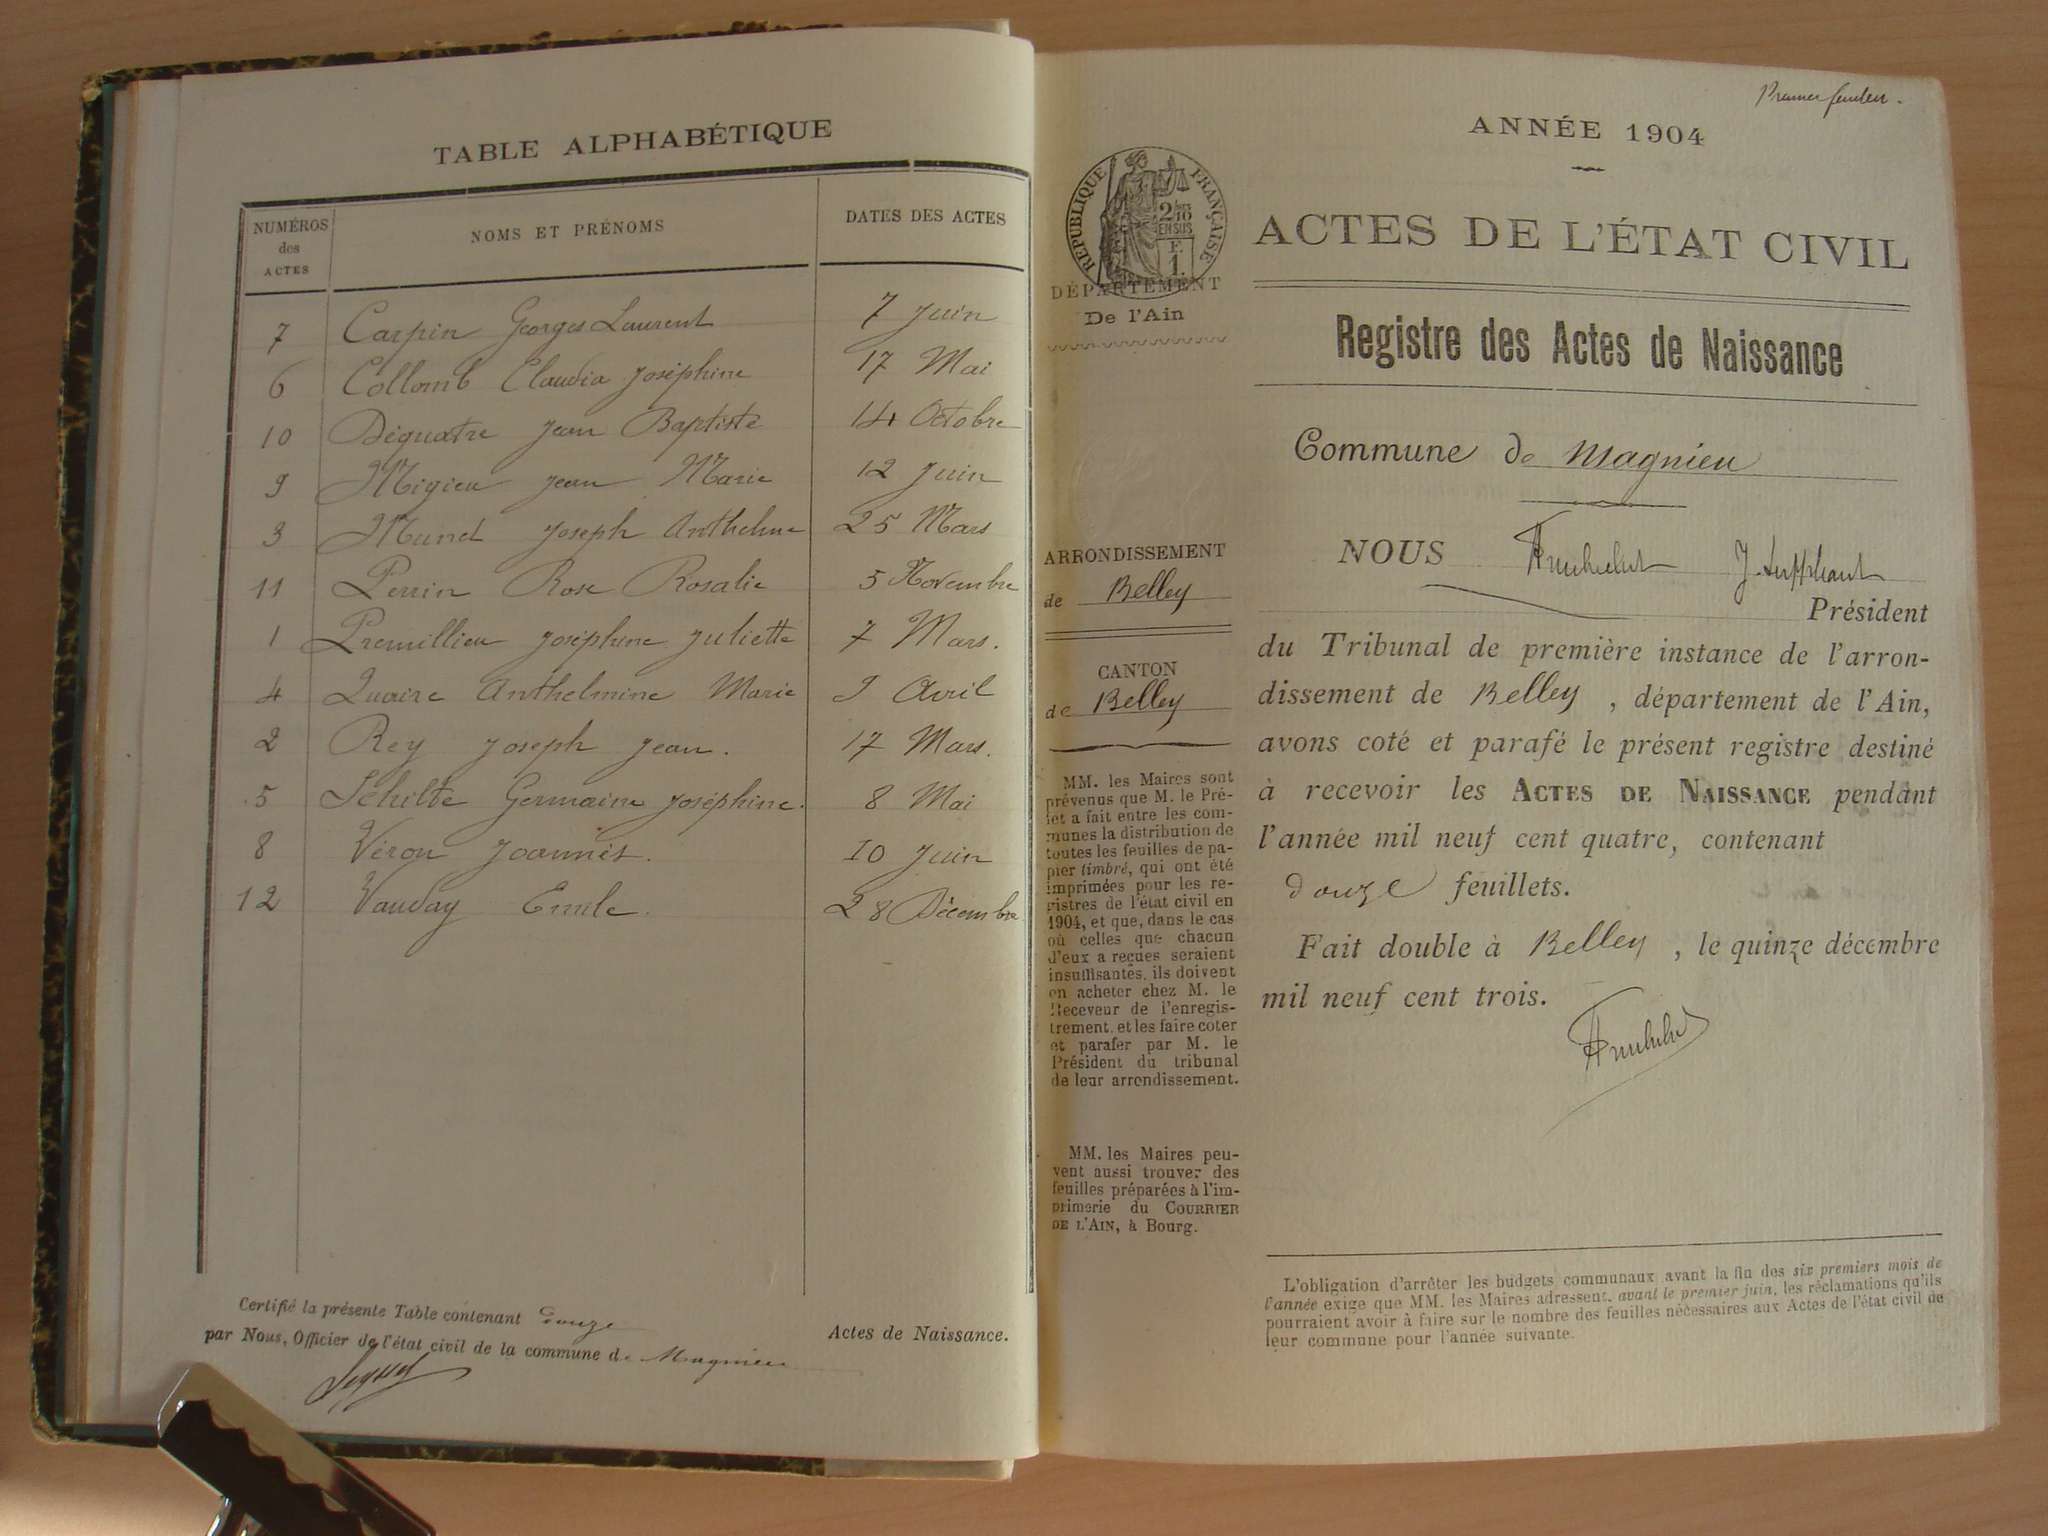 TABLE ALPHABÉTIQUE
NUMÉROS des ACTES NOMS ET PRÉNOMS DATES DES ACTES
7 Carpin Georges Laurent 7 Juin
6 Collomb Claudia Joséphine 17 Mai
10 Déquatre Jean Baptiste 14 Octobre
9 Migieu Jean Marie 12 Juin
3 Munet Joseph Anthelme 25 Mars
11 Perrin Rose Rosalie 5 Novembre
1 Premillieu Joséphine Juliette 7 Mars.
4 Quaire Anthelmine Marie 9 Avril
2 Rey Joseph Jean. 17 Mars.
5 Schilte Germaine Joséphine. 8 Mai
8 Véron Joannès. 10 Juin
12 Vauday Emile. 28 Décembre
Certifié la présente Table contenant douze Actes de Naissance.
par Nous, Officier de l'état civil de la commune de Magnieu
Premier feuillet.
ANNÉE 1904
RÉPUBLIQUE FRANÇAISE
2/10
EN SUS
F.
1.
ACTES DE L'ÉTAT CIVIL
DÉPARTEMENT
De l'Ain
Registre des Actes de Naissance
Commune de Magnieu
ARRONDISSEMENT
de Belley
CANTON
de Belley
MM. les Maires sont
prévenus que M. le Pré-
fet a fait entre les com-
munes la distribution de
toutes les feuilles de pa-
pier timbré, qui ont été
imprimées pour les re-
gistres de l'état civil en
1904, et que, dans le cas
où celles que chacun
d'eux a reçues seraient
insuffisantes, ils doivent
en acheter chez M. le
Receveur de l'enregis-
trement, et les faire coter
et parafer par M. le
Président du tribunal
de leur arrondissement.
MM. les Maires peu-
vent aussi trouver des
feuilles préparées à l'im-
primerie du COURRIER
DE L'AIN, à Bourg.
NOUS J. Suppléant
Président
du Tribunal de première instance de l'arron-
dissement de Belley, département de l'Ain,
avons coté et parafé le présent registre destiné
à recevoir les ACTES DE NAISSANCE pendant
l'année mil neuf cent quatre, contenant
douze feuillets.
Fait double à Belley, le quinze décembre
mil neuf cent trois.
L'obligation d'arrêter les budgets communaux avant la fin des six premiers mois de
l'année exige que MM. les Maires adressent, avant le premier juin, les réclamations qu'ils
pourraient avoir à faire sur le nombre des feuilles nécessaires aux Actes de l'état civil de
leur commune pour l'année suivante.